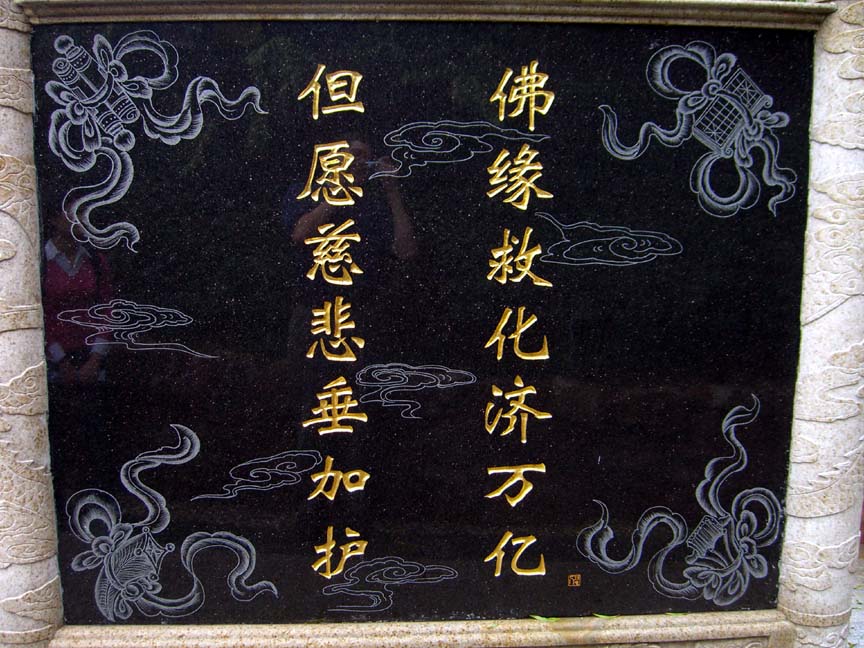 佛缘救化济万亿
但愿慈悲垂加护